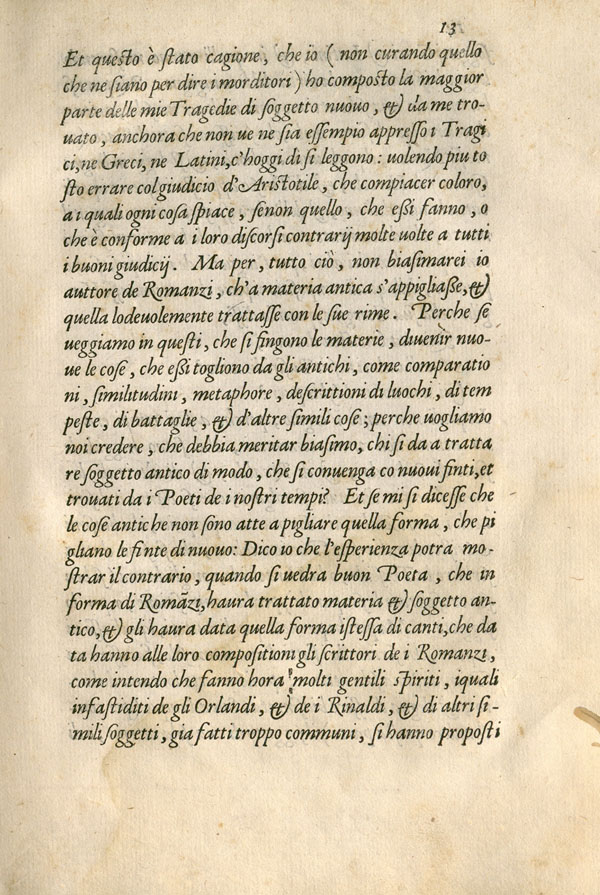 13
Et questo è ſtato cagione, che io (non curando quello
che ne ſiano per dire i morditori) ho compoſto la maggior
parte delle mie Tragedie di ſoggetto nuouo, & da me tro-
uato, anchora che non ue ne ſia eſſempio appreſſo i Tragi
ci, ne Greci, ne Latini, c'hoggi di ſi leggono: uolendo piu to
ſto errare col giudicio d'Ariſtotile, che compiacer coloro,
a i quali ogni coſa ſpiace, ſenon quello, che eßi fanno, o
che è conforme a i loro diſcorſi contrarij molte uolte a tutti
i buoni giudicij. Ma per, tutto ciò, non biaſimarei io
auttore de Romanzi, ch'a materia antica s'appigliaße, &
quella lodeuolemente trattaſſe con le ſue rime. Perche ſe
ueggiamo in queſti, che ſi fingono le materie, diuenir nuo-
ue le coſe, che eßi togliono da gli antichi, come comparatio
ni, ſimilitudini, metaphore, deſcrittioni di luochi, di tem
peſte, di battaglie, & d'altre ſimili coſe; perche uogliamo
noi credere, che debbia meritar biaſimo, chi ſi da a tratta
re ſoggetto antico di modo, che ſi conuenga co nuoui finti, et
trouati da i Poeti de i noſtri tempi? Et ſe mi ſi diceſſe che
le coſe antiche non ſono atte a pigliare quella forma, che pi
gliano le finte di nuouo: Dico io che l'eſperienza potra mo-
ſtrar il contrario, quando ſi uedra buon Poeta, che in
forma di Romãzi, haura trattato materia & ſoggetto an-
tico, & gli haura data quella forma iſteſſa di canti, che da
ta hanno alle loro compoſitioni gli ſcrittori de i Romanzi,
come intendo che fanno hora molti gentili ſpiriti, iquali
infaſtiditi de gli Orlandi, & de i Rinaldi, & di altri ſi-
mili ſoggetti, gia fatti troppo communi, ſi hanno propoſti